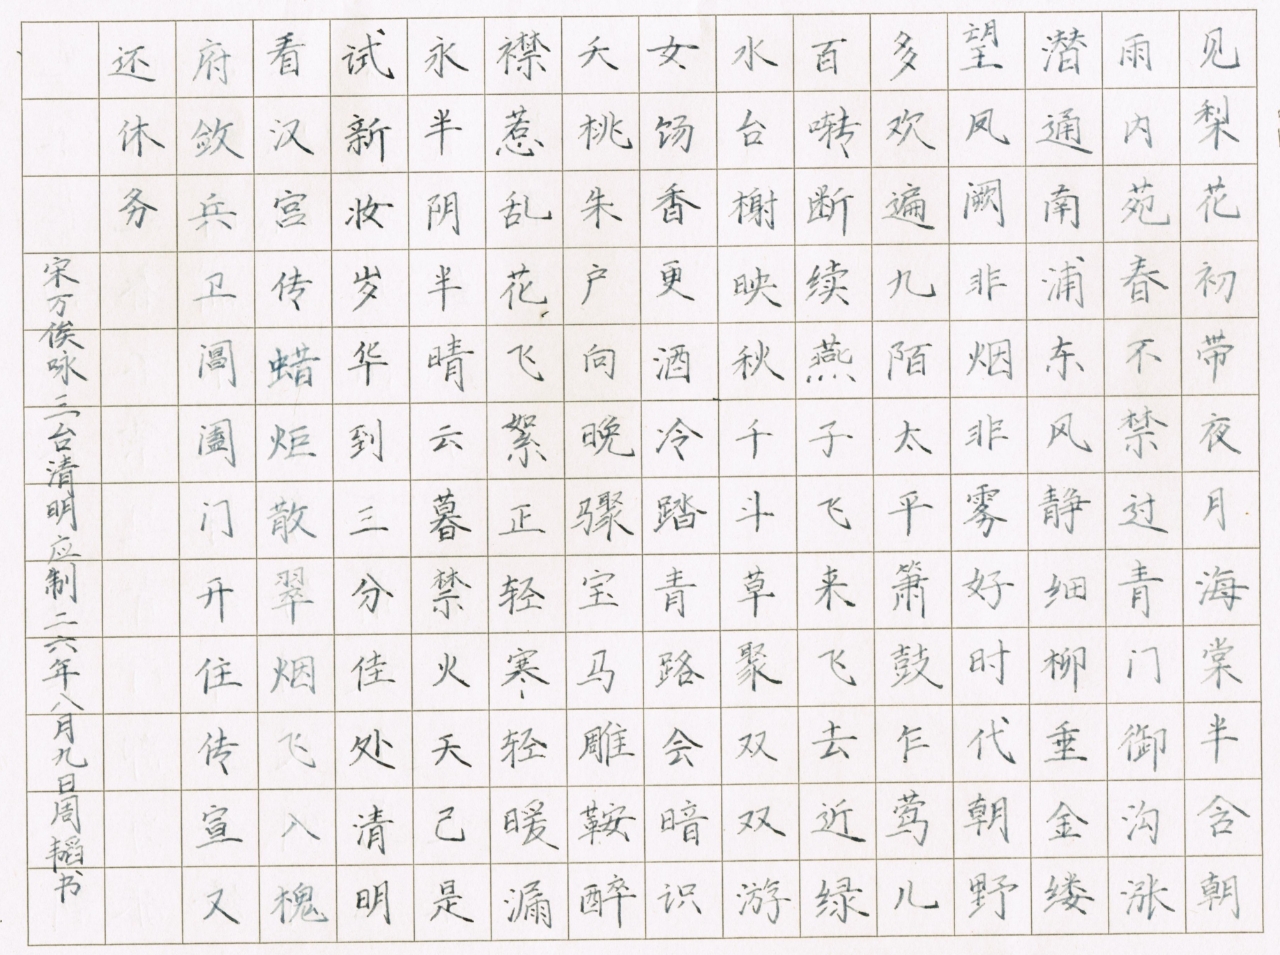 见梨花初带夜月海棠半含朝
雨内苑春不禁过青门御沟涨
潜通南浦东风静细柳垂金缕
望凤阙非烟非雾好时代朝野
多欢遍九陌太平箫鼓乍莺儿
百啭断续燕子飞来飞去近绿
水台榭映秋千斗草聚双双游
女饧香更酒冷踏青路会暗识
夭桃朱户向晚骤宝马雕鞍醉
襟惹乱花飞絮正轻寒轻暖漏
永半阴半晴云暮禁火天己是
试新妆岁华到三分佳处清明
看汉宫传蜡炬散翠烟飞入槐
府敛兵卫阊阖门开住传宣又
还休务
宋万俟咏三台清明应制二六年八月九日周韬书